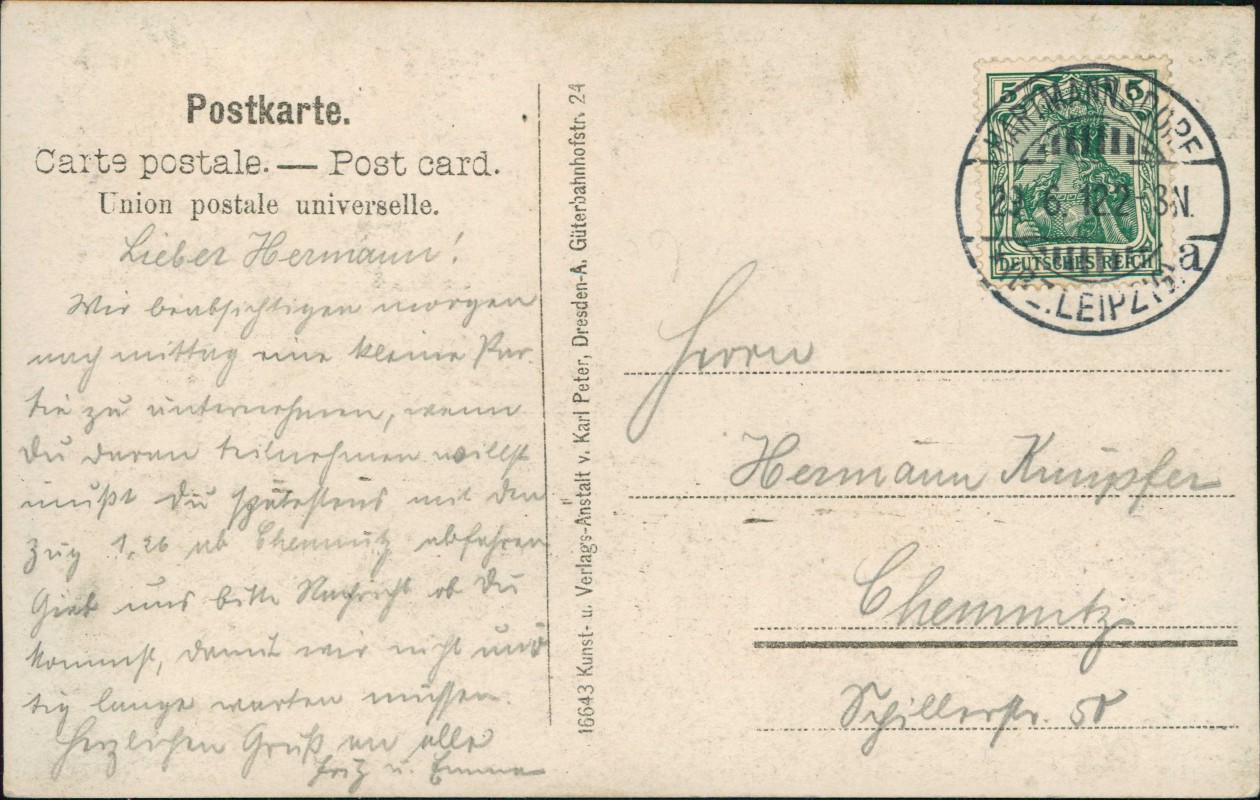 Postkarte.
Carte postale. — Post card.
Union postale universelle.
Lieber Hermann!
Wir beabsichtigen morgen
nach mittag eine kleine Par-
tie zu unternehmen, wenn
Du daran teilnehmen willst
mußt Du spätestens mit den
Zug 1,26 ab Chemnitz abfahren
Gieb uns bitte Nachricht ob Du
kommst, damit wir nicht unnö
tig lange warten müssen.
Herzlichen Gruß an alle
Fritz u. Emma
16643 Kunst- u. Verlags-Anstalt v. Karl Peter, Dresden-A. Güterbahnhofstr. 24
5 5
DEUTSCHES REICH
HARTMANNSDORF
29.6.12 2-3N.
a
LEIPZIG
Herrn
Hermann Knüpfer
Chemnitz
Schillerstr. 50